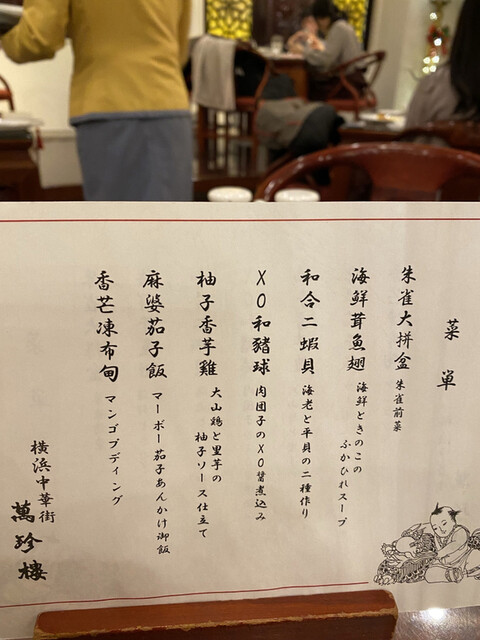 菜単
朱雀大拼盆 朱雀前菜
海鮮茸魚翅 海鮮ときのこの
ふかひれスープ
和合二蝦貝 海老と平貝の二種作り
XO和豬球 肉団子のXO醤煮込み
柚子香芋雞 大山鶏と里芋の
柚子ソース仕立て
麻婆茄子飯 マーボー茄子あんかけ御飯
香芒凍布甸 マンゴプディング
横浜中華街
萬珍樓